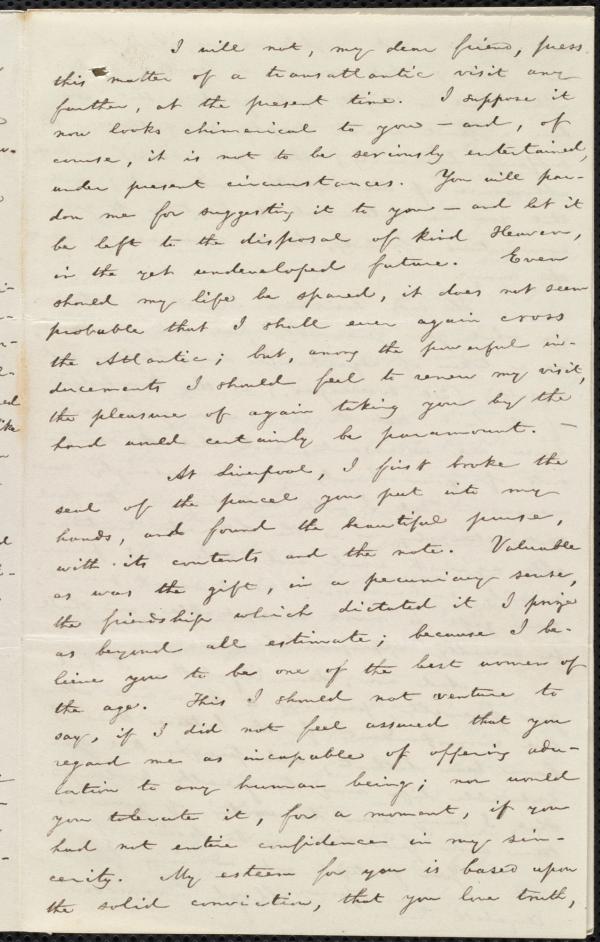 I will not, my dear friend, press
this matter of a transatlantic visit any
further, at the present time. I suppose it
now looks chimerical to you — and, of
course, it is not to be seriously entertained,
under present circumstances. You will par-
don me for suggesting it to you — and let it
be left to the disposal of kind Heaven,
in the yet undeveloped future. Even
should my life be spared, it does not seem
probable that I shall ever again cross
the Atlantic; but, among the powerful in-
ducements I should feel to renew my visit,
the pleasure of again taking you by the
hand would certainly be paramount. —
At Liverpool, I first broke the
seal of the parcel you put into my
hands, and found the beautiful purse,
with its contents and the note. Valuable
as was the gift, in a pecuniary sense,
the friendship which dictated it I prize
as beyond all estimate; because I be-
lieve you to be one of the best women of
the age. This I should not venture to
say, if I did not feel assured that you
regard me as incapable of offering adu-
lation to any human being; nor would
you tolerate it, for a moment, if you
had not entire confidence in my sin-
cerity. My esteem for you is based upon
the solid conviction, that you love truth,